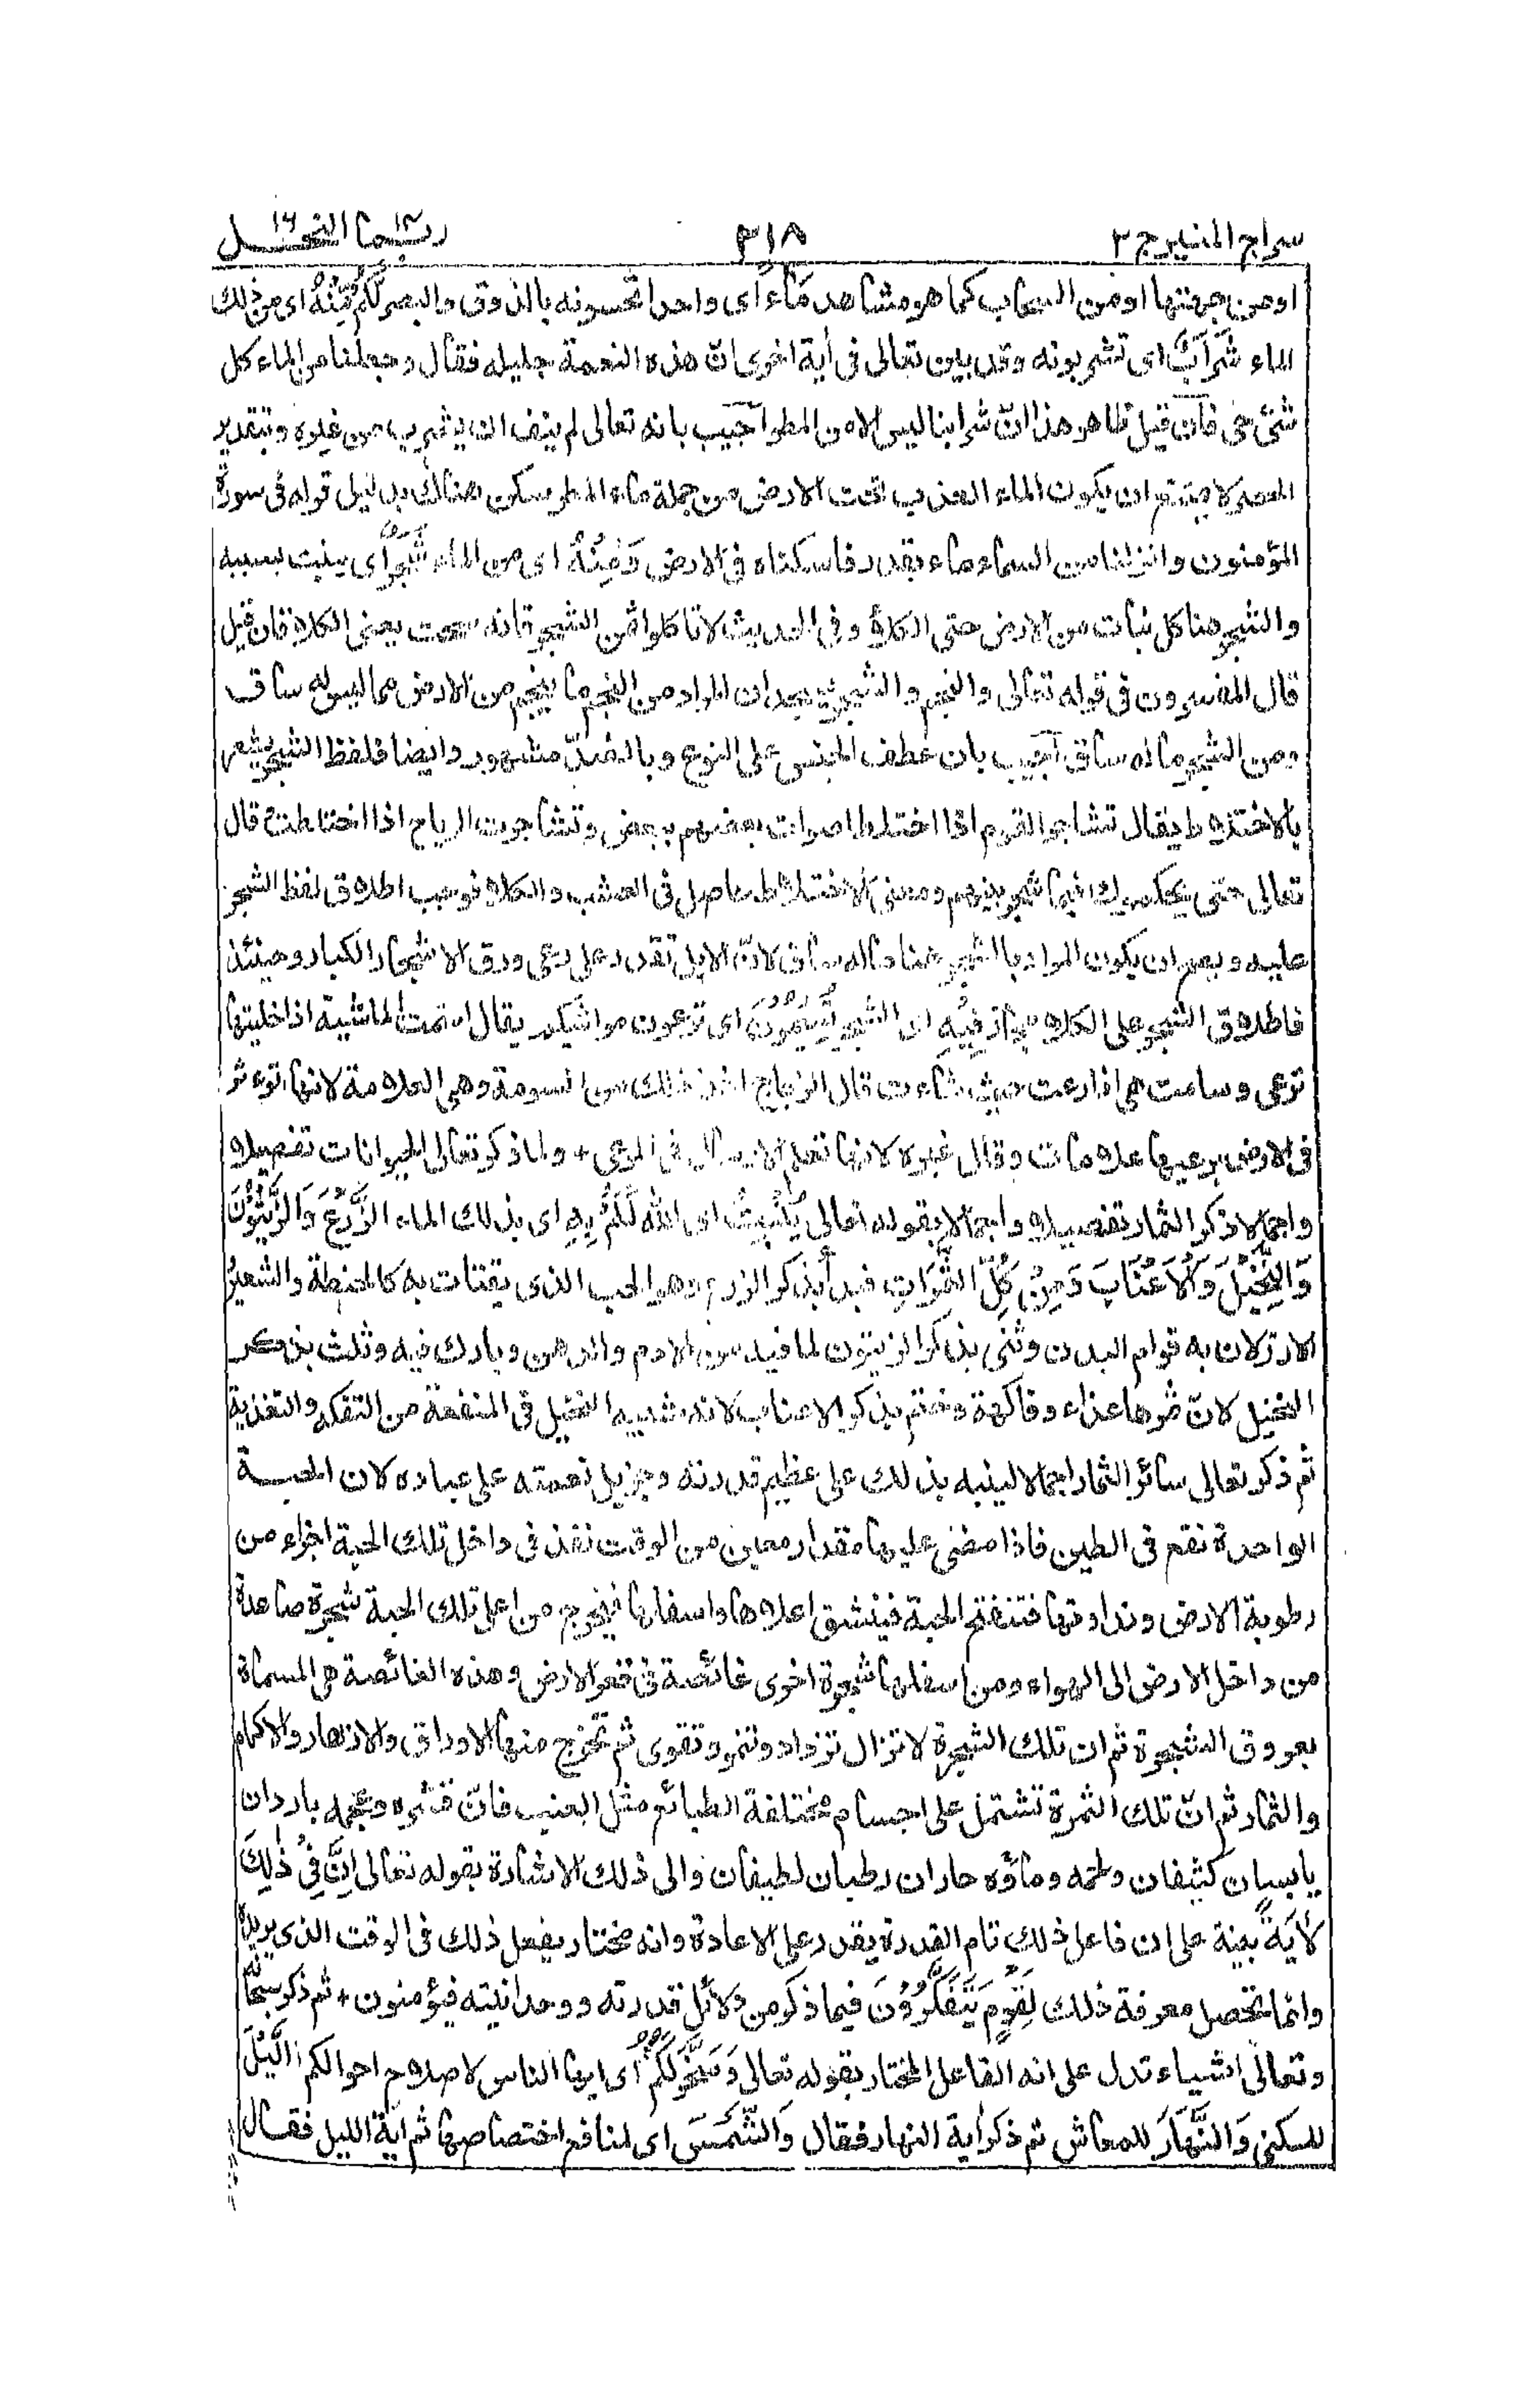 سراج المنير ج ٢ ٣١٨ ربما ١٤ النحل ١٦
او من جهتها او من السحاب كما هو مشاهد مَاءً اى واحدا تحسونه بالذوق والبصر لَّكُم مِّنْهُ اى من ذلك
الماء شَرَابٌ اى تشربونه وقد بين تعالى فى أية اخرى انّ هذه النعمة جليله فقال وجعلنا من الماء كل
شئ حى فان قيل ظاهر هذا انّ شرابنا ليس الا من المطر اجيب بانه تعالى لم ينف ان يشرب من غيره وبتقدير
الحصر لا يمتنع ان يكون الماء العذب تحت الارض من جملة ماء المطر سكن هناك بدليل قوله فى سورة
المؤمنون وانزلنا من السماء ماء بقدر فاسكناه فى الارض وَمِنْهُ اى من الماء شَجَرٌ اى ينبت بسببه
والشجر هنا كل نبات من الارض حتى الكلأ وفى الحديث لا تأكلوا ثمن الشجر فانه سحت يعنى الكلأ فان قيل
قال المفسرون فى قوله تعالى والنجم والشجر يسجدان المراد من النجم ما ينجم من الارض مما ليس له ساق
ومن الشجر ما له ساق اجيب بان عطف الجنس على النوع وبالضدّ مشهور وايضا فلفظ الشجر يشعر
بالاختلاط يقال تشاجر القوم اذا اختلط اصوات بعضهم ببعض وتشاجرت الرياح اذا اختلطت قال
تعالى حتى يحكموك فيما شجر بينهم ومعنى الاختلاط حاصل فى العشب والكلأ فوجب اطلاق لفظ الشجر
عليه ويصح ان يكون المراد بالشجر هنا ما له ساق لانّ الابل تقدر على رعى ورق الاشجار الكبار وحينئذ
فاطلاق الشجر على الكلأ مجاز فِيْهِ اى الشجر تُسِيْمُوْنَ اى ترعون مواشيكم يقال اسمت الماشية اذا خليتها
ترعى وسامت هى اذا رعت حيث شاءت قال الزجاج اخذ ذلك من السومة وهى العلامة لانها تؤثر
فى الارض برعيها علامات وقال غيره لانها تعلم الارسال فى المرعى + ولما ذكر تعالى الحيوانات تفصيلا
واجمالا ذكر الثمار تفصيلا واجمالا بقوله تعالى يُنْبِتُ اى الله لَكُمْ بِهِ اى بذلك الماء الزَّرْعَ وَالزَّيْتُوْنَ
وَالنَّخِيْلَ وَالْاَعْنَابَ وَمِنْ كُلِّ الثَّمَرَاتِ فبدأ بذكر الزرع وهو الحب الذى يقتات به كالحنطة والشعير
الارز لان به قوام البدن وثنى بذكر الزيتون لما فيه من الادم والدهن وبارك فيه وثلث بذكر
النخيل لانّ ثمرها غذاء وفاكهة وختم بذكر الاعناب لانه شبيه النخيل فى المنفعة من التفكه والتغذية
ثم ذكر تعالى سائر الثمار اجمالا لينبه بذلك على عظيم قدرته وجزيل نعمته على عباده لان الحبة
الواحدة تقع فى الطين فاذا مضى عليها مقدار معين من الوقت نفذ فى داخل تلك الحبة اجزاء من
رطوبة الارض ونداوتها فتنفتح الحبة فينشق اعلاها واسفلها فيخرج من اعلى تلك الحبة شجرة صاعدة
من داخل الارض الى الهواء ومن اسفلها شجرة اخرى غائصة فى قعر الارض وهذه الغائصة هى المسماة
بعروق الشجرة ثم ان تلك الشجرة لا تزال تزداد وتنمو وتقوى ثم تخرج منها الاوراق والازهار والاكمام
والثمار ثم انّ تلك الثمرة تشتمل على اجسام مختلفة الطبائع مثل العنب فانّ قشره وعجمه باردان
يابسان كثيفان ولحمه وماؤه حاران رطبان لطيفان والى ذلك الاشارة بقوله تعالى اِنَّ فِىْ ذٰلِكَ
لَاٰيَةً بينة على ان فاعل ذلك تام القدرة يقدر على الاعادة وانه مختار يفعل ذلك فى الوقت الذى يريده
وانما تحصل معرفة ذلك لِقَوْمٍ يَّتَفَكَّرُوْنَ فيما ذكر من دلائل قدرته ووحدانيته فيؤمنون + ثم ذكر سبحانه
وتعالى اشياء تدل على انه الفاعل المختار بقوله تعالى وَسَخَّرَ لَكُمُ اى ايها الناس لاصلاح احوالكم الَّيْلَ
للسكنى وَالنَّهَارَ للمعاش ثم ذكر أية النهار فقال وَالشَّمْسَ اى لمنافع اختصاصها ثم اية الليل فقال